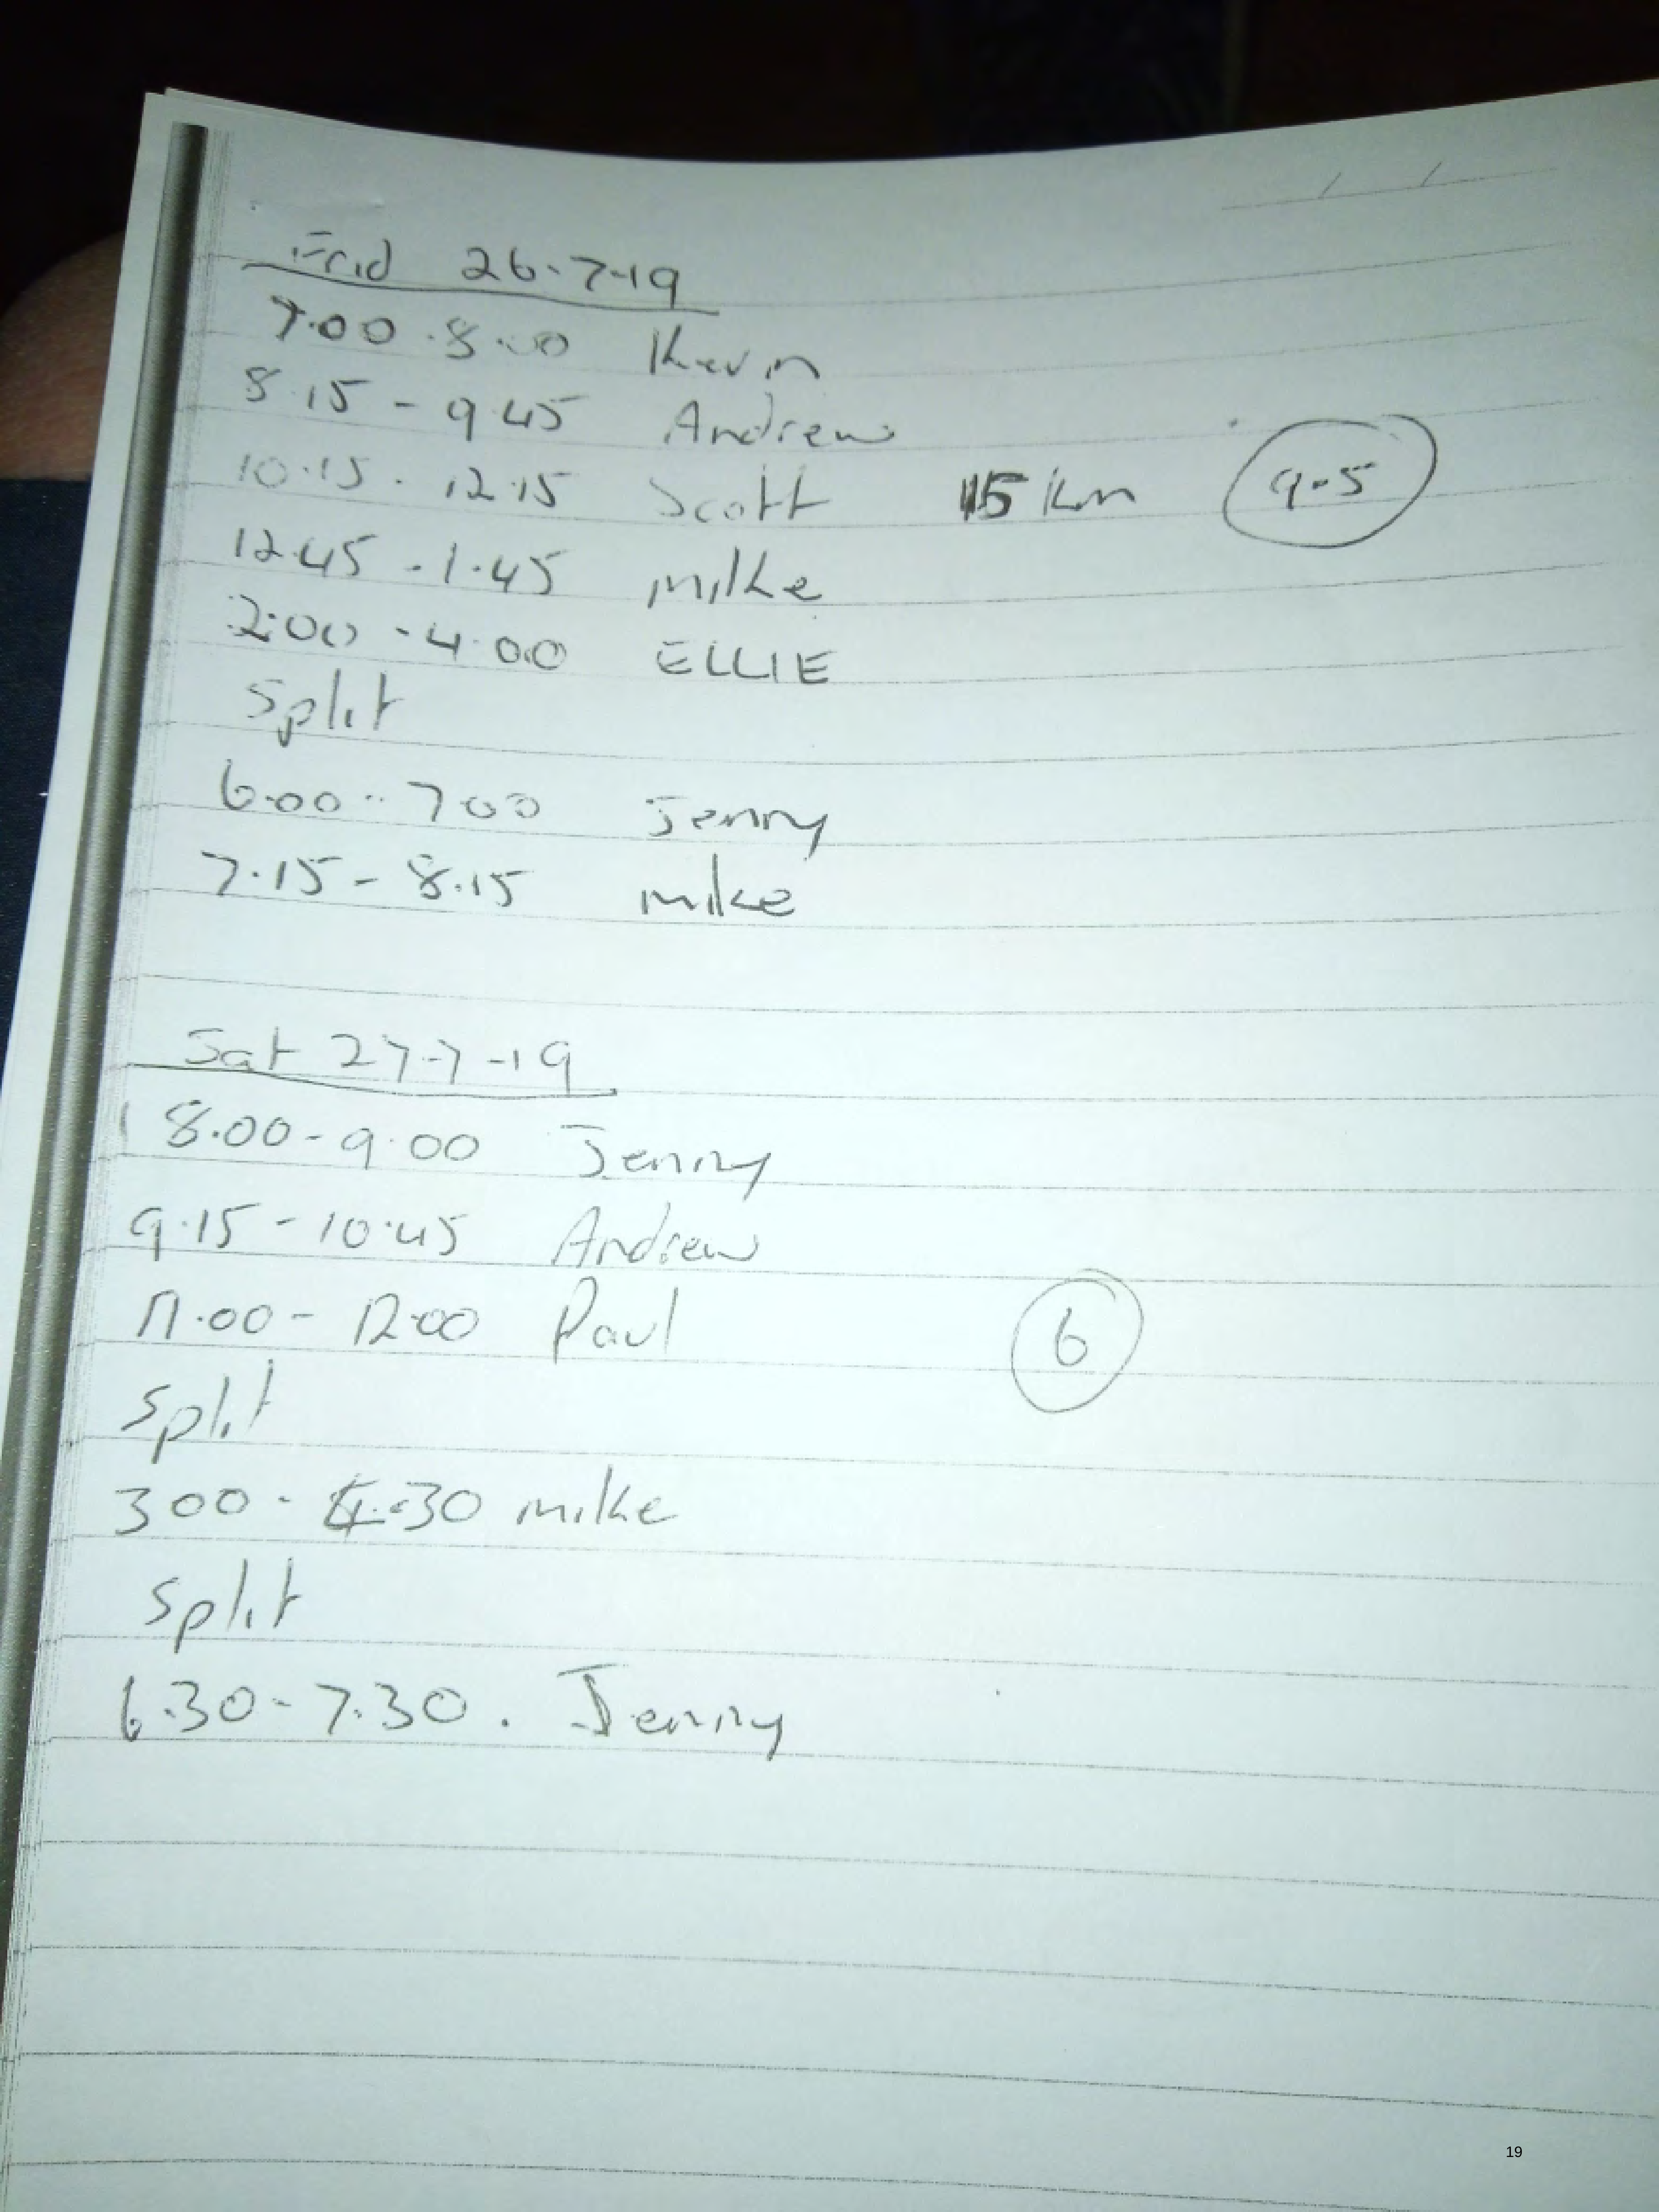 Frid 26-7-19
7.00 - 8.00 Kevin
8.15 - 9.45 Andrew
10.15 - 12.15 Scott 15 Km 9.5
12.45 - 1.45 Mike
2.00 - 4.00 ELLIE
Split
6.00 - 7.00 Jenny
7.15 - 8.15 Mike
Sat 27-7-19
8.00 - 9.00 Jenny
9.15 - 10.45 Andrew
11.00 - 12.00 Paul 6
Split
3.00 - 4.30 Mike
Split
6.30 - 7.30. Jenny
19